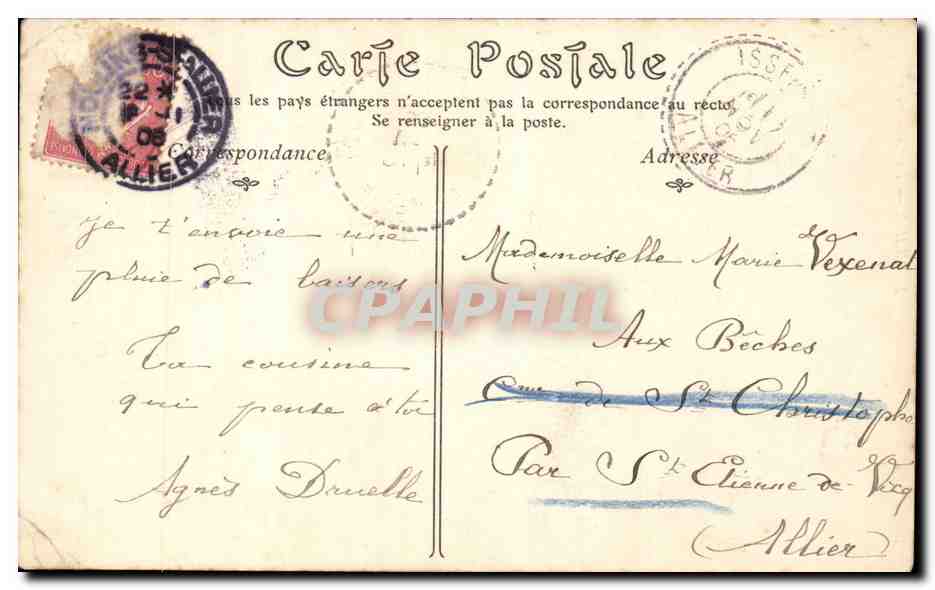 Carte Postale
Tous les pays étrangers n'acceptent pas la correspondance au recto
Se renseigner à la poste.
MOULINS ALLIER
22
05
ALLIER
ISSE
ER
Correspondance
Adresse
Je t'envoie une
pluie de baisers
Ta cousine
qui pense à toi
Agnès Druelle
Mademoiselle Marie Vexenat
Aux Bêches
Cne de St Christophe
Par St Etienne de Vicq
(Allier)
CPAPHIL